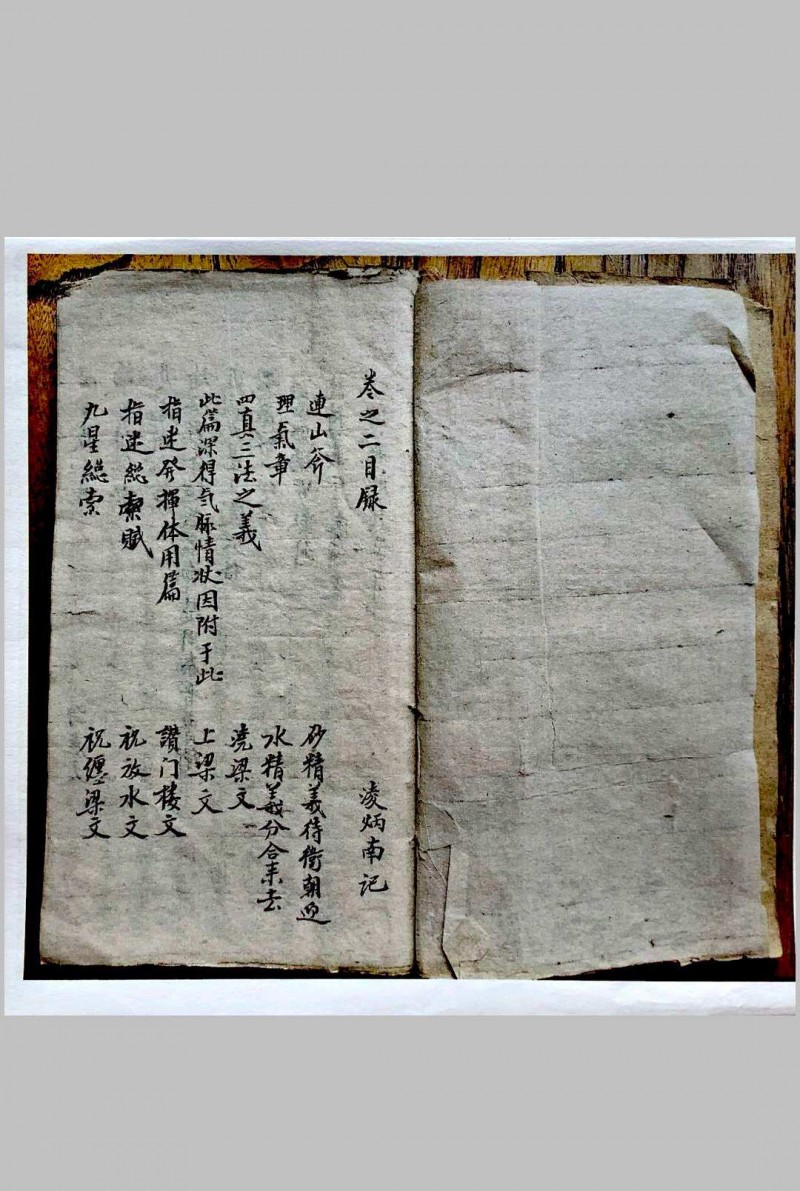 卷之二目録
凌炳南记
連山斧
理氣章
四真三法之義
此篇深得気脉情状因附于此
指迷發揮体用篇
指迷総索賦
九星総索
砂精義待衛朝迎
水精義分合来去
澆梁文
上梁文
讚门楼文
祝放水文
祝纏梁文